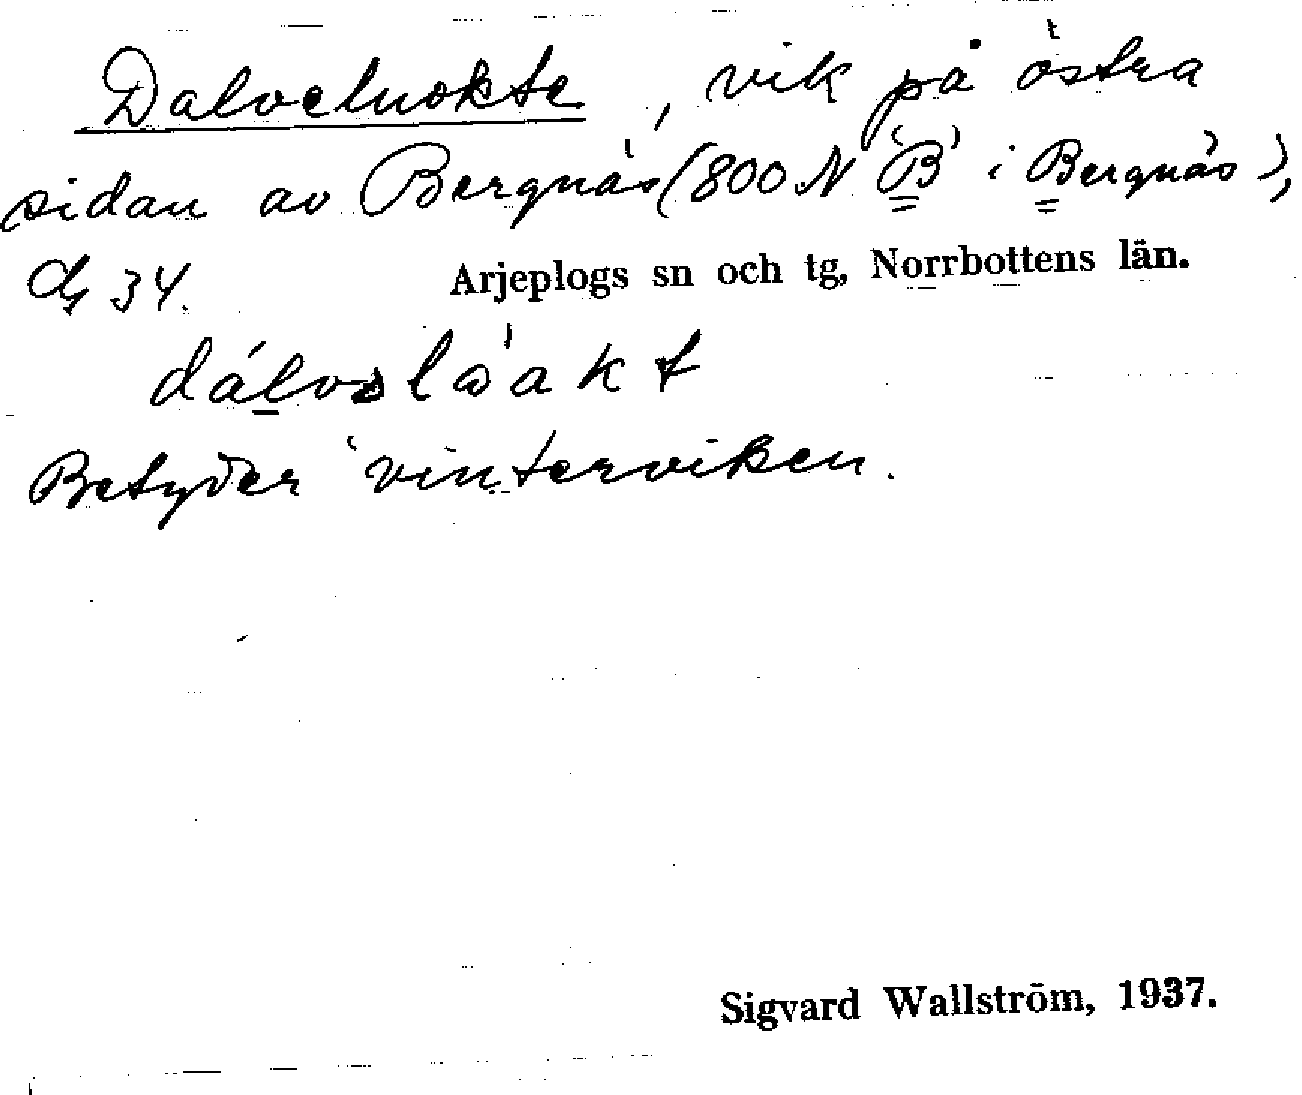 Dalveluokte, vik på östra
sidan av Bergnäs (800 N 'B' i Bergnäs),
34.
Arjeplogs sn och tg, Norrbottens län.
Betyder 'vinterviken.
Sigvard Wallström, 1937.